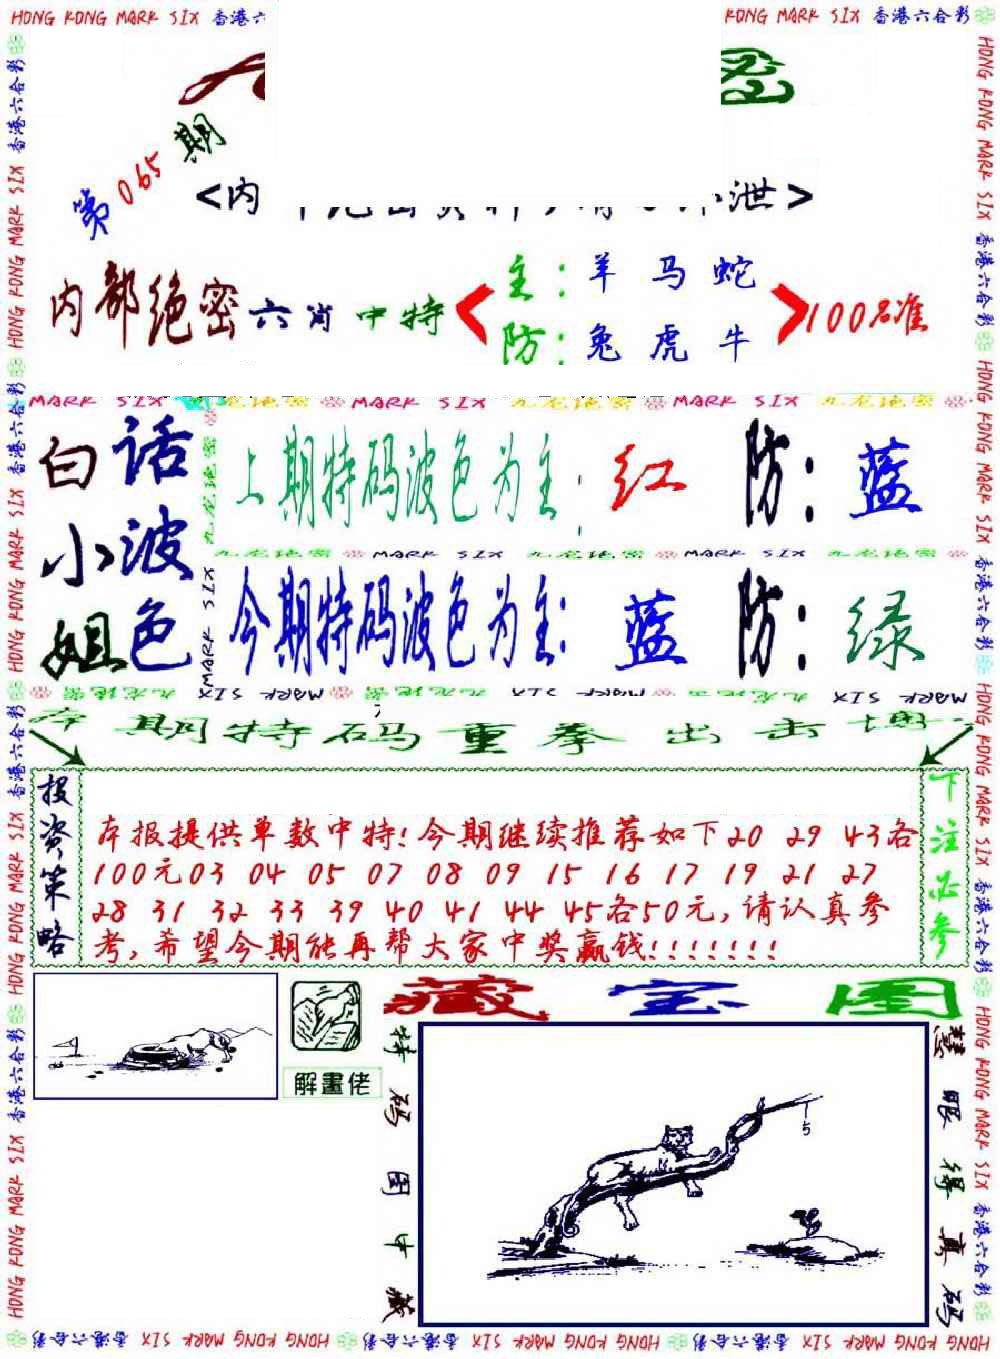 HONG KONG MARK SIX 香港六
KONG MARK SIX 香港六合彩
密
第065期
<内
泄>
内部绝密六肖中特
主:羊 马 蛇
防:兔 虎 牛
100%准
MARK SIX 九龙绝密 MARK SIX 九龙绝密 MARK SIX 九龙绝密
白小姐
话波色
上期特码波色为主:红 防:蓝
九龙绝密 MARK SIX 九龙绝密 MARK SIX 九龙绝密
今期特码波色为主:蓝 防:绿
本期特码重拳出击
投资策略
本报提供单数中特!今期继续推荐如下20 29 43各
100元03 04 05 07 08 09 15 16 17 19 21 27
28 31 32 33 39 40 41 44 45各50元,请认真参
考,希望今期能再帮大家中奖赢钱!!!!!!!
下注必参
解畫佬
藏宝图
特码图中藏
5
慧眼得真码
HONG KONG MARK SIX 香港六合彩